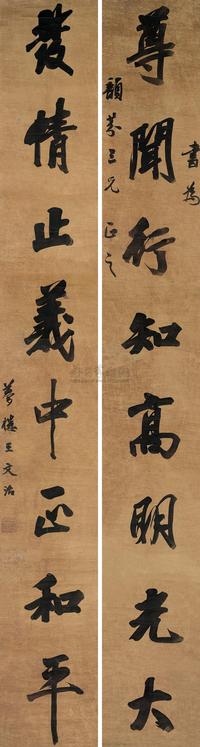 書為
尊聞行知高明光大
韻葊三兄正之
發情止義中正和平
夢樓王文治